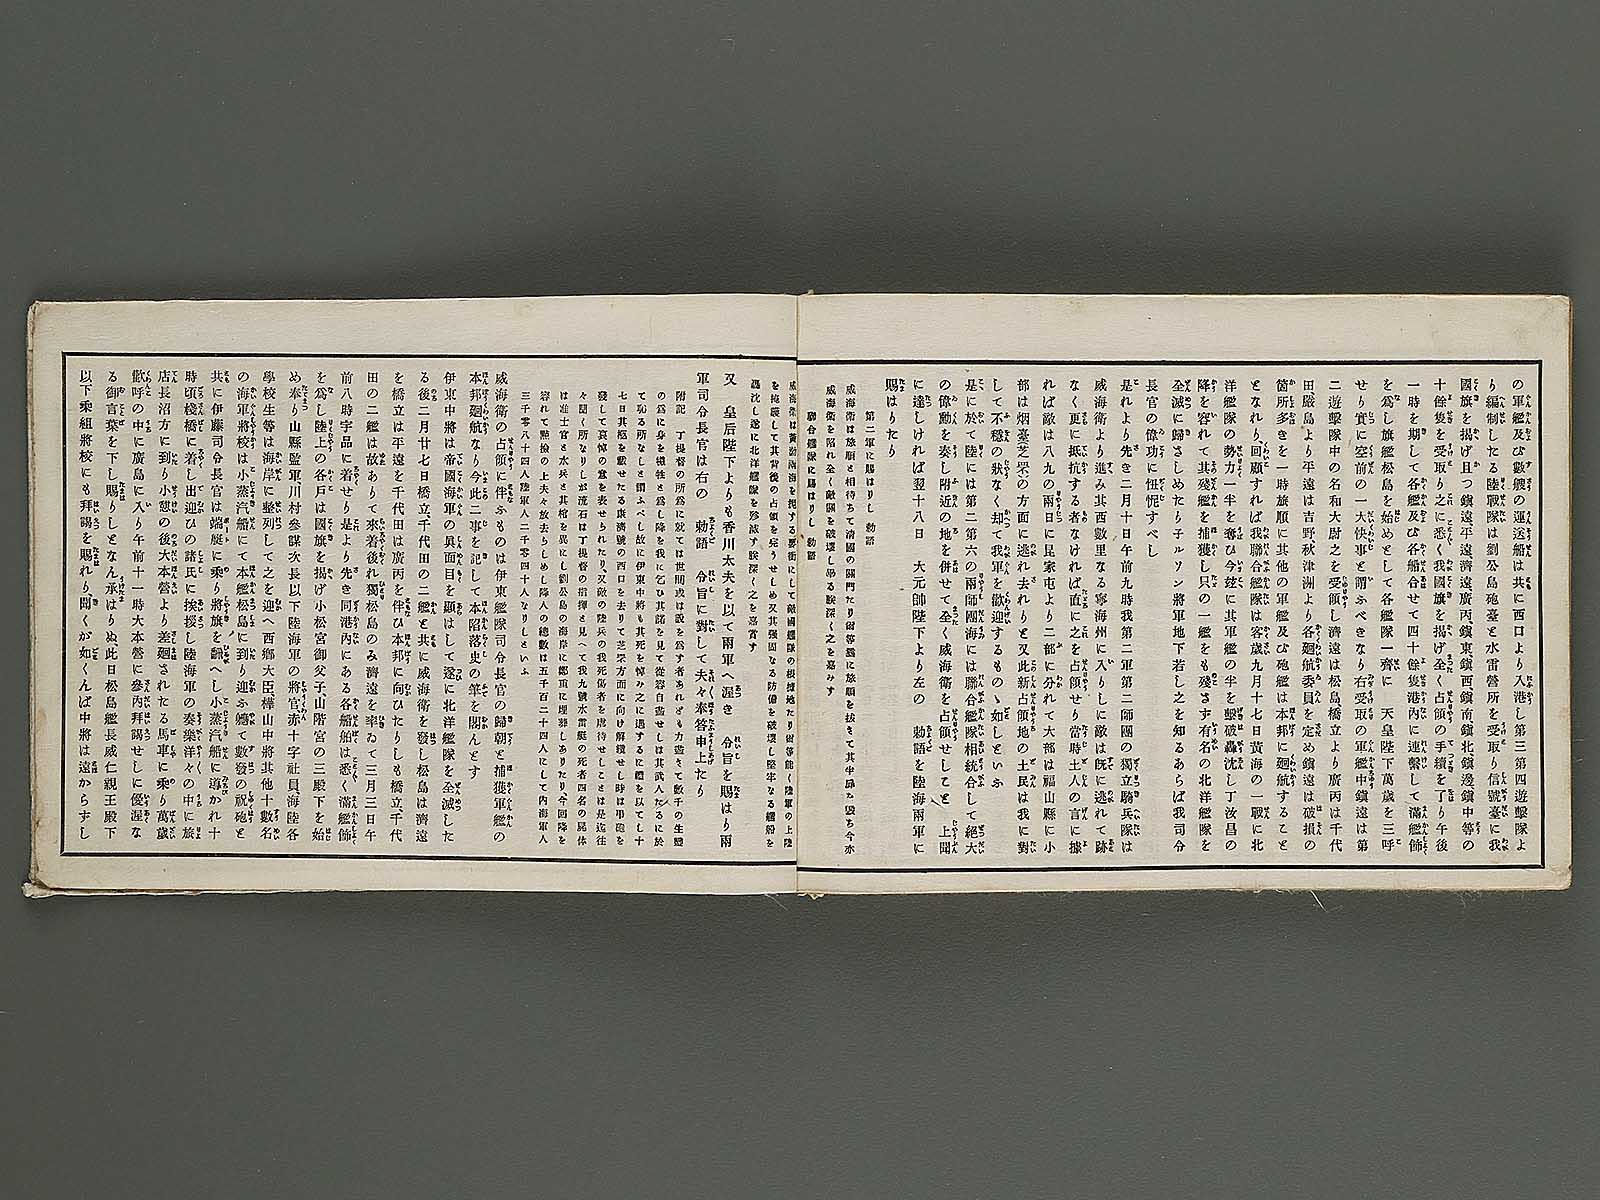 の軍艦及び數艘の運送船は共に西口より入港し第三第四遊擊隊よ
り編制したる陸戰隊は劉公島砲臺と水雷營所を受取り信號臺に我
國旗を揭げ且つ鎭遠平遠濟遠廣丙、鎭東鎭西鎭南鎭北鎭邊鎭中等の
十餘隻を受取り之に悉く我國旗を揭げ全く占領の手續を了り午後
一時を期して各艦及び各船合せて四十餘隻港內に連繫して滿艦飾
を爲し旗艦松島を始めとして各艦隊一齊に 天皇陛下萬歲を三呼
せり實に空前の一大快事と謂ふべきなり右受取の軍艦中鎭遠は第
二遊擊隊中の名和大尉之を受領し濟遠は松島橋立より廣丙は千代
田嚴島より平遠は吉野秋津洲より各廻航委員を定め鎭遠は破損の
箇所多きを一時旅順に其他の軍艦及び砲艦は本邦に廻航すること
となれり回顧すれば我聯合艦隊は客歲九月十七日黃海の一戰に北
洋艦隊の勢力一半を奪ひ今玆に其軍艦の半を擊破轟沈し丁汝昌の
降を容れて其殘艦を捕獲し只の一艦をも殘さす有名の北洋艦隊を
全滅に歸さしめたり子ルソン將軍地下若し之を知るあらば我司令
長官の偉功に忸怩すべし
是れより先き二月十日午前九時我第二軍第二師團の獨立騎兵隊は
威海衞より進み其西數里なる寧海州に入りしに敵は旣に逃れて跡
なく更に抵抗する者なければ直に之を占領せり當時土人の言に據
れば敵は八九の兩日に昆家屯より二部に分れて大部は福山縣に小
部は烟臺芝罘の方面に逃れ去れりと又此新占領地の土民は我に對
して不穩の狀なく却て我軍を歡迎するものゝ如しといふ
是に於て陸には第二第六の兩師團海には聯合艦隊相統合して絕大
の偉動を奏し附近の地を併せて全く威海衞を占領せしこと 上聞
に達しければ翌十八日 大元帥陛下より左の 勅語を陸海兩軍に
賜はりたり
第二軍に賜はりし 勅語
威海衞は旅順と相待ちて淸國の關門たり爾等曩に旅順を拔きて其半扉を毀ち今亦
威海衞を陷れ全く敵關を破壞し畢る朕深く之を嘉みす
聯合艦隊に賜はりし 勅語
威海衞は黃渤兩海を扼する要衝にして敵國艦隊の根據地たり爾等能く陸軍の上陸
を掩護して其背後の占領を完うせしめ又其强固なる防備を破壞し堅牢なる艦船を
轟沈し遂に北洋艦隊を殄滅す朕深く之を嘉賞す
又 皇后陛下よりも香川太夫を以て兩軍へ渥き 令旨を賜はり兩
軍司令長官は右の 勅語 令旨に對して夫々奉答申上たり
附記 丁提督の所爲に就ては世間或は說を爲す者あれども力盡きて數千の生靈
の爲に身を犧牲と爲し降を我に乞ひ其諾を見て從容自盡せしは其武人たるに於
て恥る所なしと謂ふべし故に伊東中將も其死を悼み之に遇するに禮を以てし十
七日其柩を載せたる康濟號の西口を去りて芝罘方面に向け解纜せし時は弔砲を
發して哀悼の意を表せられたり、又敵の陸兵の我死傷者を虐待せしことは是迄往
々聞く所なりしが流石は丁提督の指揮と見へて我九號水雷艇の死者四名の屍体
は准士官と水兵と其棺を異にし劉公島の海岸に鄭重に埋葬しありたり今回降を
容れて點撿の上夫々放去らしめし降人の總數は五千百二十四人にして內海軍人
三千零八十四人陸軍人二千零四十人なりしといふ
威海衞の占領に伴ふものは伊東艦隊司令長官の歸朝と捕獲軍艦の
本邦廻航なり今此二事を記して本陷落史の筆を閣んとす
伊東中將は帝國海軍の眞面目を顯はして遂に北洋艦隊を全滅した
る後二月廿七日橋立千代田の二艦と共に威海衞を發し松島は濟遠
を橋立は平遠を千代田は廣丙を伴ひ本邦に向ひたりしも橋立千代
田の二艦は故ありて來着後れ獨松島のみ濟遠を率ゐて三月三日午
前八時宇品に着せり是より先き同港內にある各船舶は悉く滿艦飾
を爲し陸上の各戶は國旗を揭げ小松宮御父子、山階宮の三殿下を始
め奉り山縣監軍川村參謀次長以下陸海軍の將官、赤十字社員、海陸各
學校生等は海岸に整列して之を迎へ西鄕大臣、樺山中將其他十數名
の海軍將校は小蒸汽船にて本艦松島に到り迎ふ軈て數發の祝砲と
共に伊藤司令長官は端艇に乘り將旗を飜へし小蒸汽船に導かれ十
時頃棧橋に着し出迎ひの諸氏に挨拶し陸海軍の奏樂洋々の中に旅
店長沼方に到り小憩の後大本營より差廻されたる馬車に乘り萬歲
歡呼の中に廣島に入り午前十一時大本營に參內拜謁せしに優渥な
る御言葉を下し賜りしとなん承はりぬ此日松島艦長威仁親王殿下
以下乘組將校にも拜謁を賜れり、聞くが如くんば中將は遠からずし